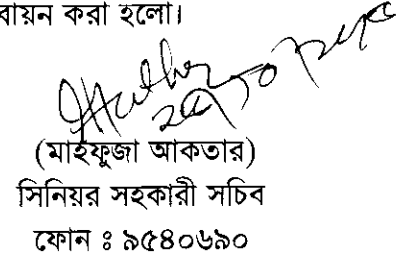 বায়ন করা হলো।
(মাহফুজা আকতার)
সিনিয়র সহকারী সচিব
ফোন ঃ ৯৫৪০৬৯০